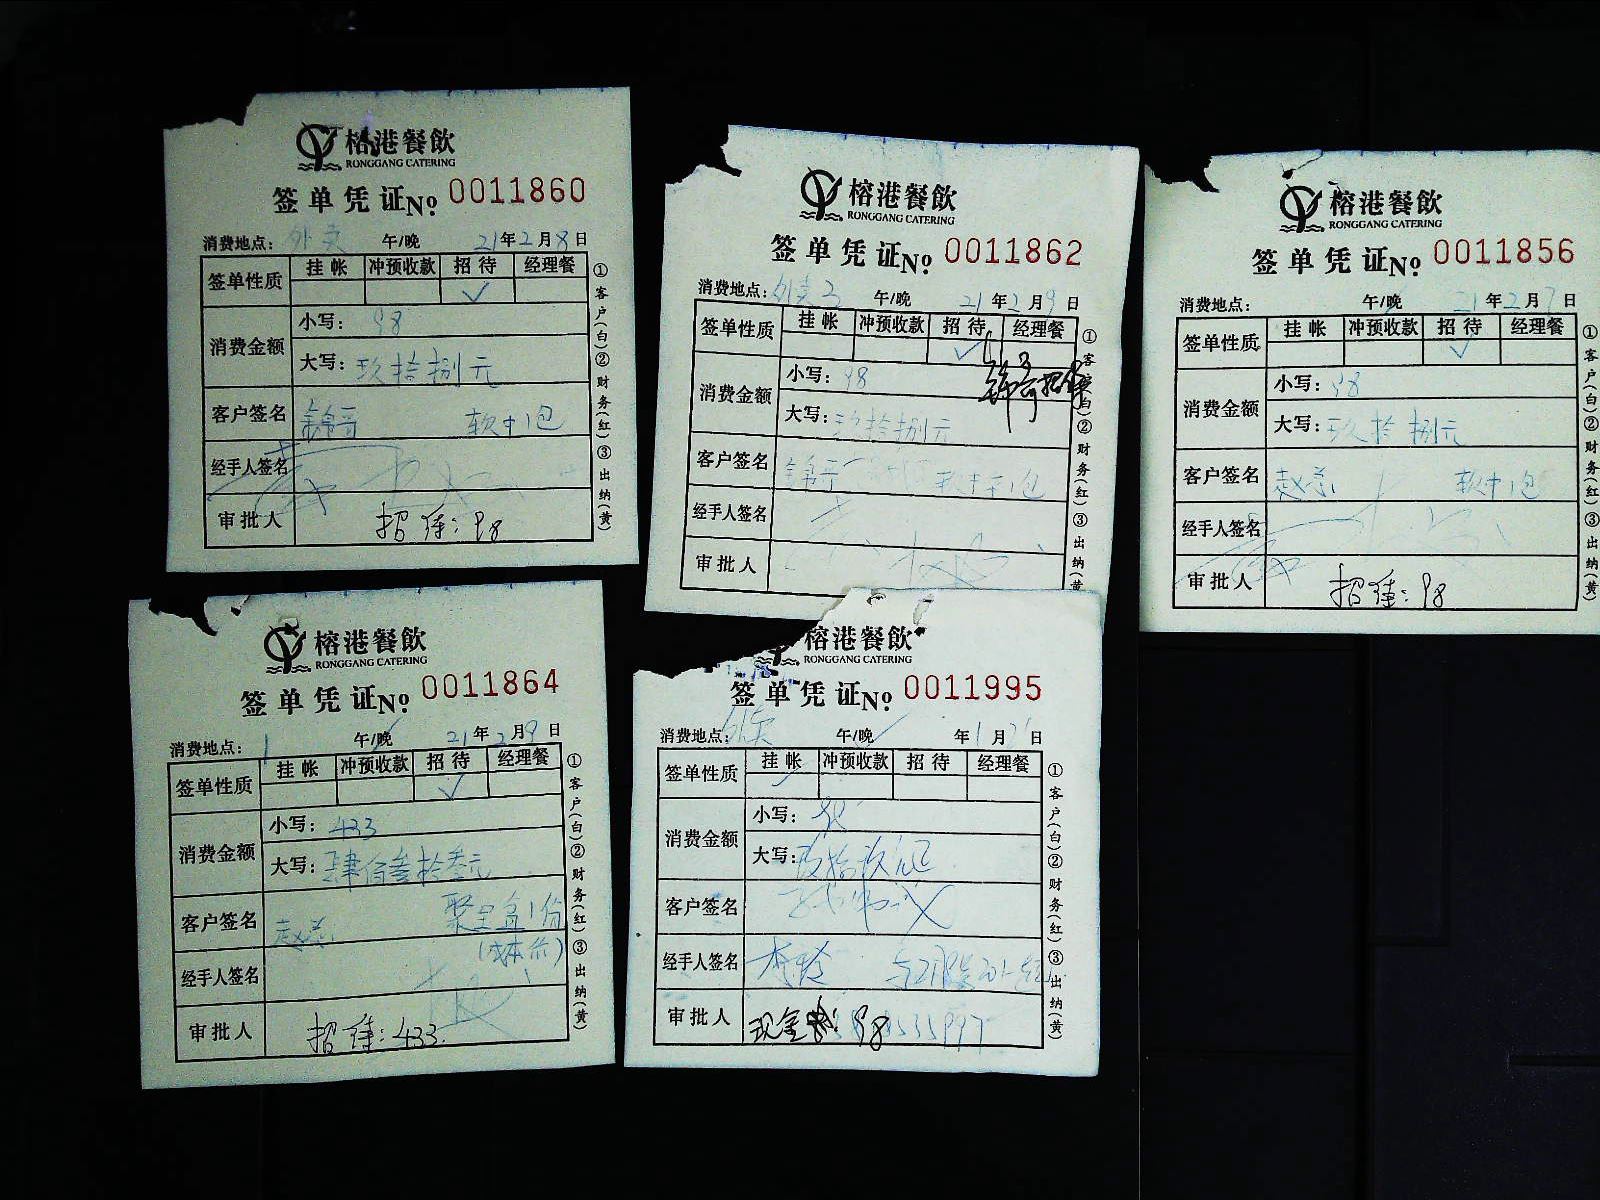 榕港餐飲
RONGGANG CATERING
签单凭证 No. 0011860
消费地点: 外卖 午/晚 21年2月8日
签单性质 挂帐 冲预收款 招待 经理餐
✓
消费金额 小写: 98
大写: 玖拾捌元
客户签名 锦哥 软中1包
经手人签名
审批人 招待: 98
①客户(白)②财务(红)③出纳(黄)
榕港餐飲
RONGGANG CATERING
签单凭证 No. 0011862
消费地点: 外卖 午/晚 21年2月9日
签单性质 挂帐 冲预收款 招待 经理餐
✓
消费金额 小写: 98
大写: 玖拾捌元
客户签名 锦哥
经手人签名
审批人
①客户(白)②财务(红)③出纳(黄
榕港餐飲
RONGGANG CATERING
签单凭证 No. 0011856
消费地点: 午/晚 21年2月7日
签单性质 挂帐 冲预收款 招待 经理餐
✓
消费金额 小写: 98
大写: 玖拾捌元
客户签名 赵总 软中1包
经手人签名
审批人 招待: 98
①客户(白)②财务(红)③出纳(黄)
榕港餐飲
RONGGANG CATERING
签单凭证 No. 0011864
消费地点: 午/晚 21年2月9日
签单性质 挂帐 冲预收款 招待 经理餐
✓
消费金额 小写: 433
大写: 肆佰叁拾叁元
客户签名 赵总 聚宝盆1份
(成本价)
经手人签名
审批人 招待: 433
①客户(白)②财务(红)③出纳(黄)
榕港餐飲
RONGGANG CATERING
签单凭证 No. 0011995
消费地点: 外卖 午/晚 年1月 日
签单性质 挂帐 冲预收款 招待 经理餐
消费金额 小写:
大写:
客户签名
经手人签名
审批人 现金 98
①客户(白)②财务(红)③出纳(黄)